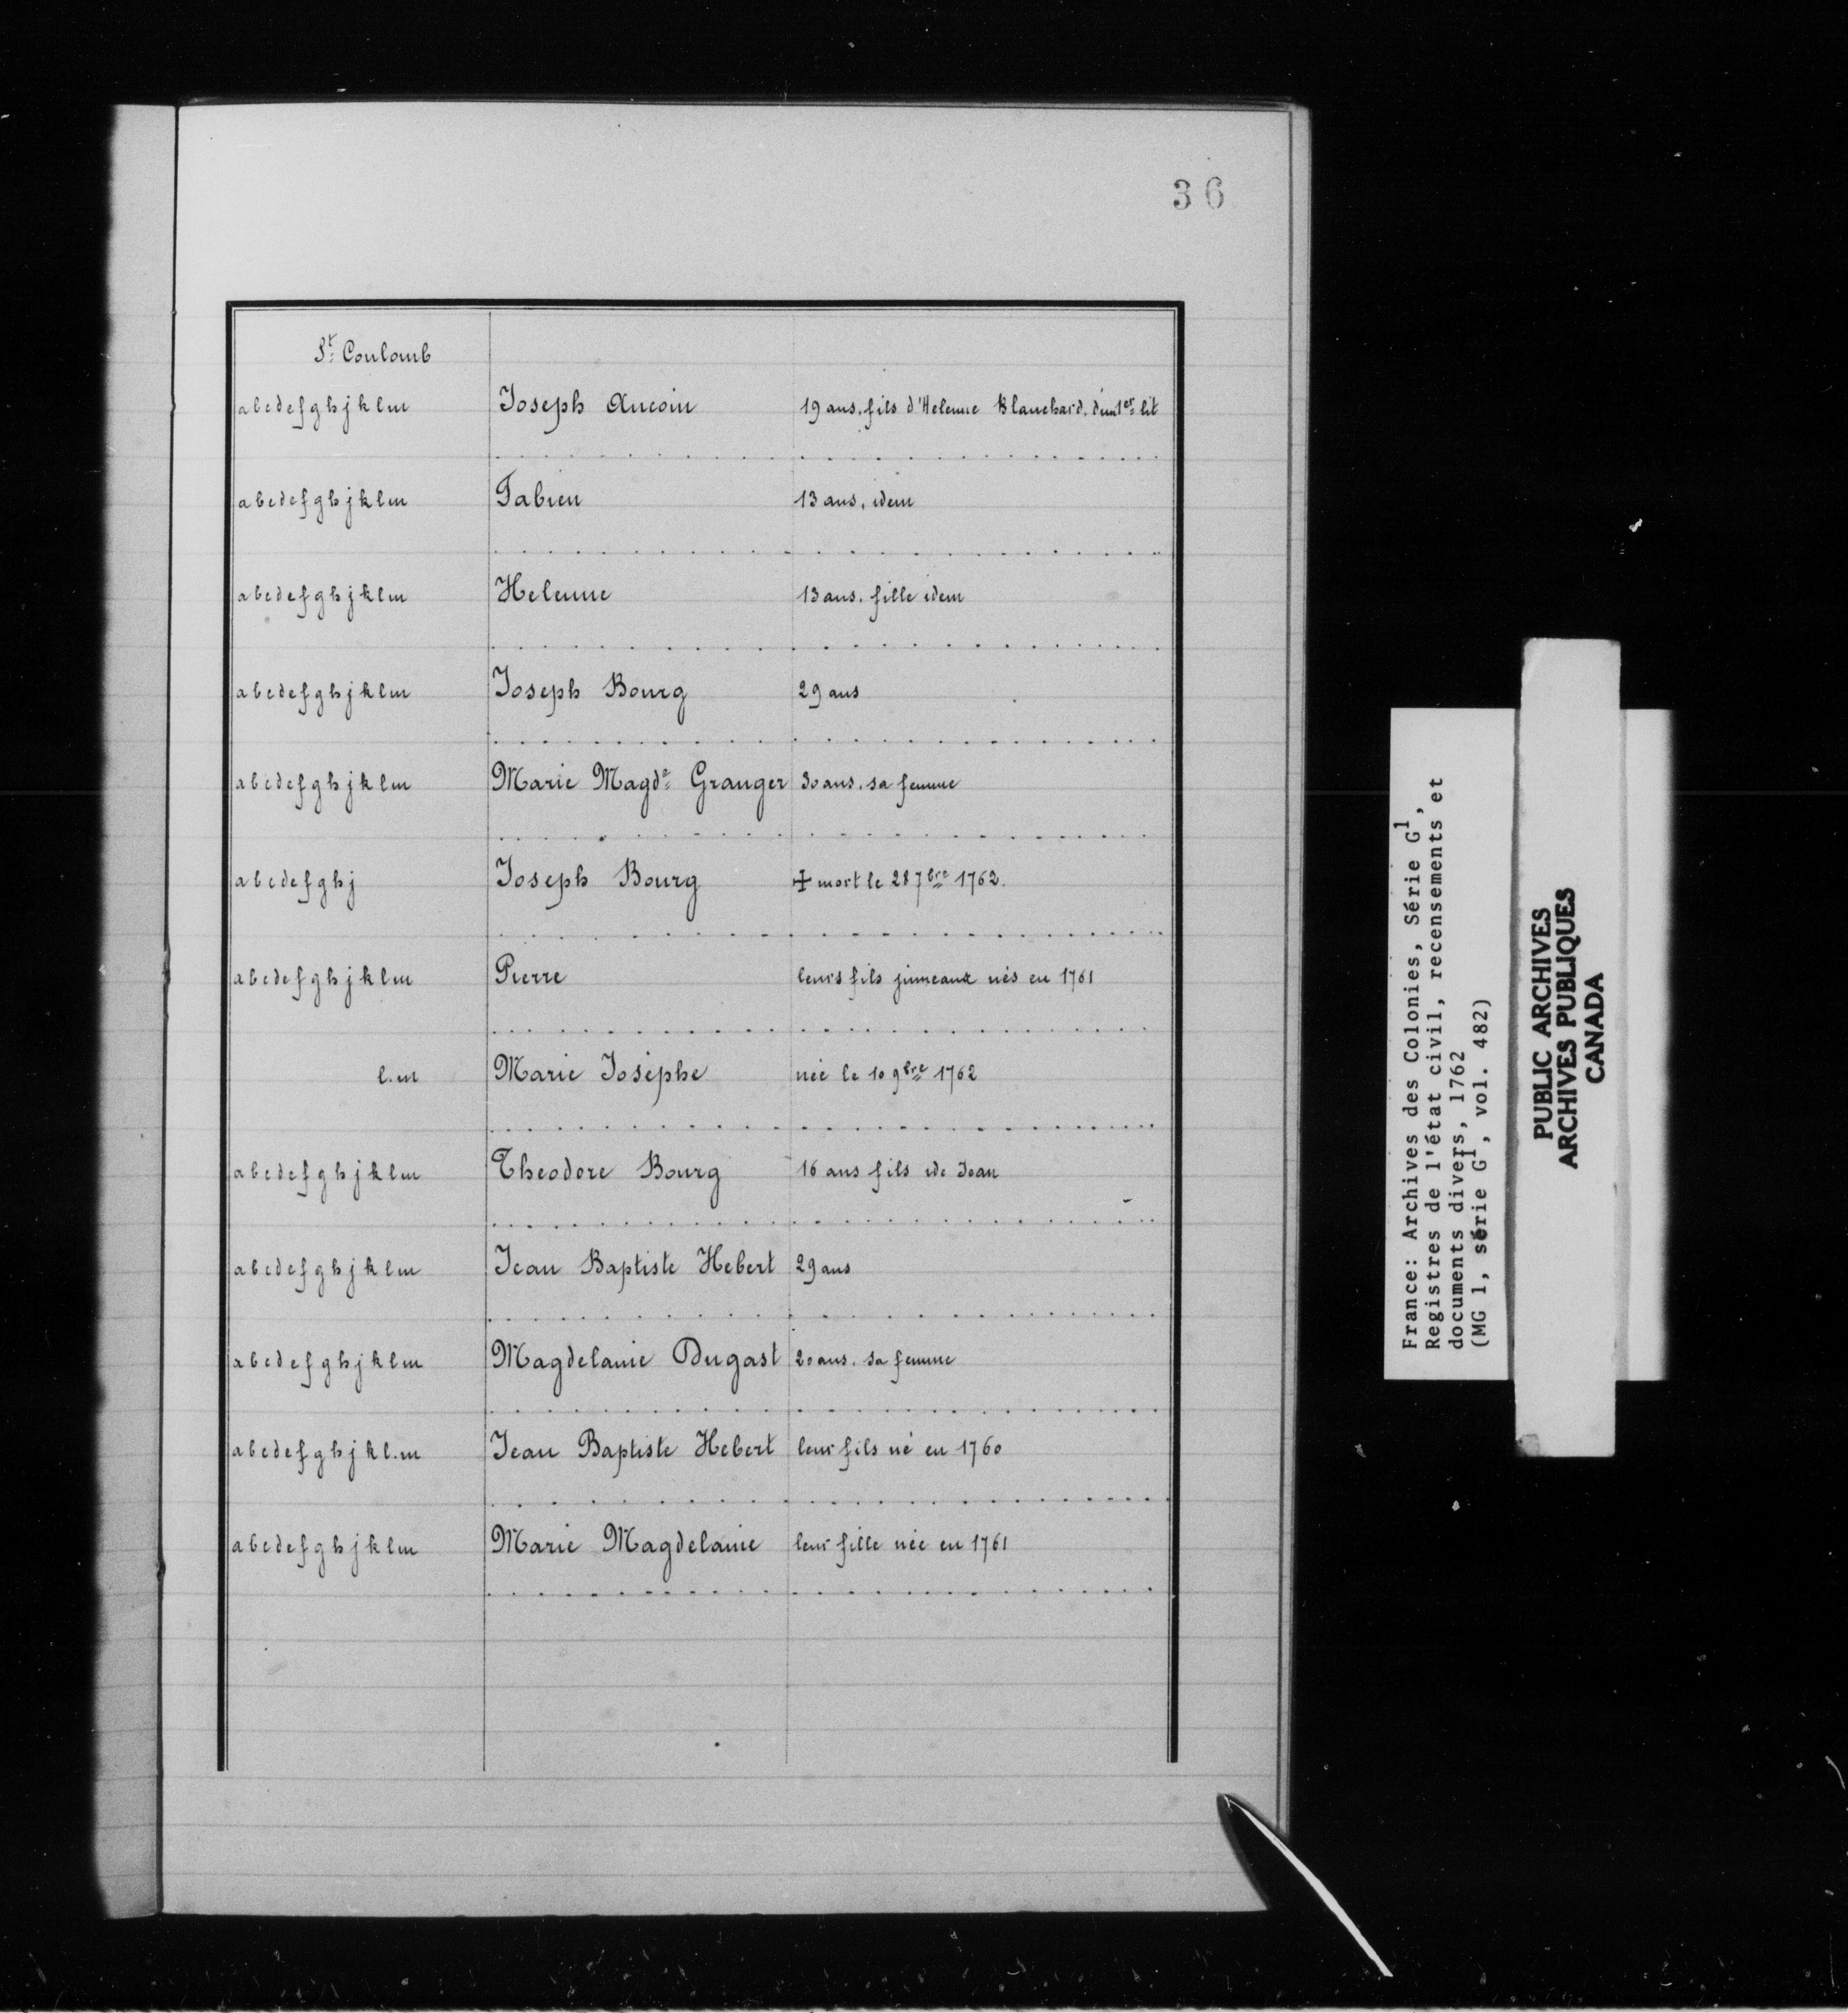 36
St Coulomb
abcdefghjklm Joseph Aucoin 19 ans. fils d'Helenne Blanchard. d'un 1er lit
abcdefghjklm Fabien 13 ans. idem
abcdefghjklm Helenne 13 ans. fille idem
abcdefghjklm Joseph Bourg 29 ans
abcdefghjklm Marie Magde Granger 30 ans. sa femme
abcdefghj Joseph Bourg ✝ mort le 28 7bre 1762.
abcdefghjklm Pierre leurs fils jumeaux nés en 1761
l.m Marie Josèphe née le 10 9bre 1762
abcdefghjklm Theodore Bourg 16 ans fils de Jean
abcdefghjklm Jean Baptiste Hebert 29 ans
abcdefghjklm Magdelanie Dugast 20 ans. sa femme
abcdefghjkl.m Jean Baptiste Hebert leur fils né en 1760
abcdefghjklm Marie Magdelanie leur fille née en 1761
France: Archives des Colonies, Série G1,
Registres de l'état civil, recensements et
documents divers, 1762
(MG 1, série G1, vol. 482)
PUBLIC ARCHIVES
ARCHIVES PUBLIQUES
CANADA